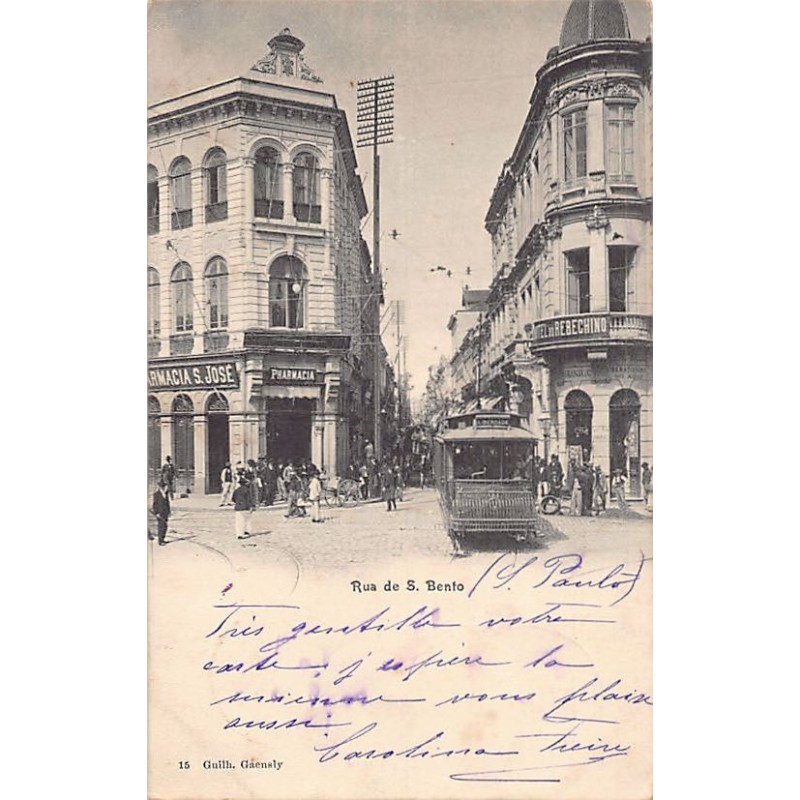 ARMACIA S. JOSÉ
PHARMACIA
REBECHINO
LIBERDADE
Rua de S. Bento (S. Paulo)
Très gentille votre
carte, j'espère la
mienne vous plaire
aussi
Carolina Freire
15 Guilh. Gaensly